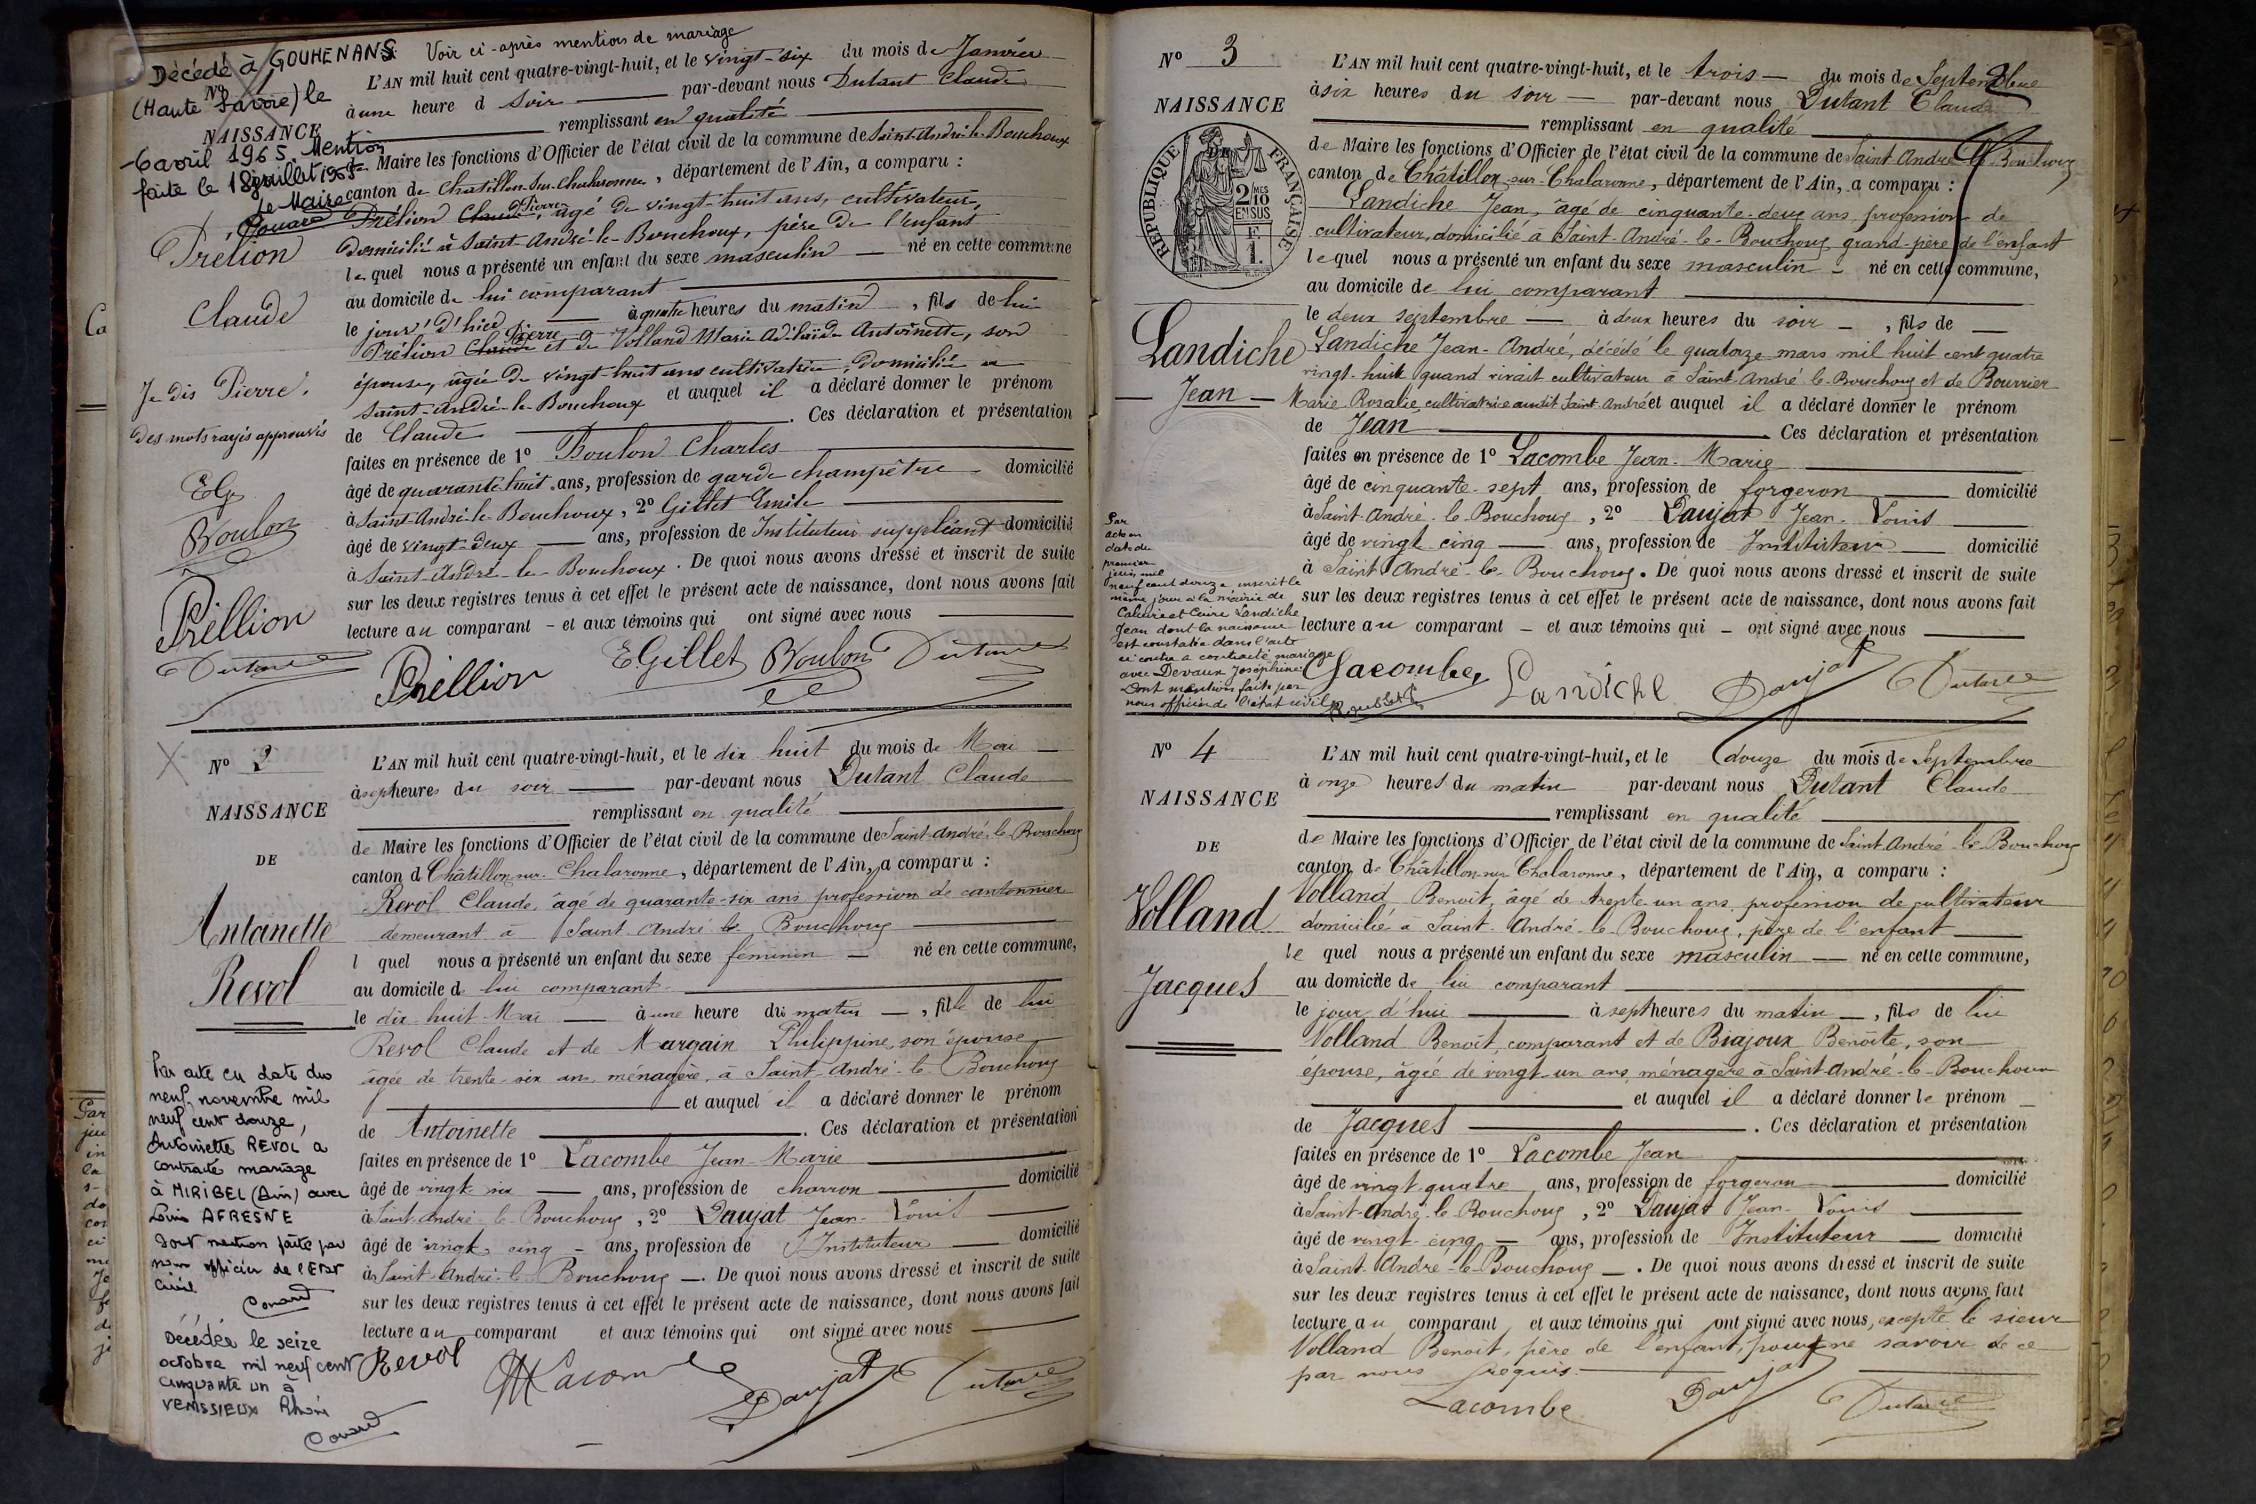 Décédé à GOUHENANS
(Haute Savoie) le
6 avril 1965. Mention
faite le 18 juillet 1965
Le Maire
Voir ci-après mention de mariage
Nº 1
NAISSANCE
Prélion
Claude
Je dis Pierre.
des mots rayés approuvés
EG
Boulon
Préllion
Dutant
L'AN mil huit cent quatre-vingt-huit, et le vingt-six du mois de Janvier
à une heure d soir par-devant nous Dutant Claude
remplissant en qualité
de Maire les fonctions d'Officier de l'état civil de la commune de Saint-André-le-Bouchoux
canton de Châtillon-sur-Chalaronne, département de l'Ain, a comparu :
Prélion Claude Pierre, âgé de vingt-huit ans, cultivateur,
domicilié à Saint-André-le-Bouchoux, père de l'enfant
lequel nous a présenté un enfant du sexe masculin — né en cette commune
au domicile de lui comparant
le jour d'hier à quatre heures du matin, fils de lui
Prélion Claude Pierre et de Volland Marie Adélaïde Antoinette, son
épouse, âgée de vingt-huit ans cultivatrice, domiciliée à
Saint-André-le-Bouchoux et auquel il a déclaré donner le prénom
de Claude . Ces déclaration et présentation
faites en présence de 1º Boulon Charles
âgé de quarante-huit ans, profession de garde champêtre domicilié
à Saint-André-le-Bouchoux, 2º Gillet Emile
âgé de vingt-deux — ans, profession de Instituteur suppléant domicilié
à Saint-André-le-Bouchoux. De quoi nous avons dressé et inscrit de suite
sur les deux registres tenus à cet effet le présent acte de naissance, dont nous avons fait
lecture au comparant - et aux témoins qui ont signé avec nous
Préllion EGillet Boulon Dutant
Nº 2
NAISSANCE
DE
Antoinette
Revol
Par acte en date du
neuf novembre mil
neuf cent douze,
Antoinette REVOL a
contracté mariage
à MIRIBEL (Ain) avec
Louis AFRESNE
dont mention faite par
nous officier de l'Etat
Civil
Conard
Décédée le seize
octobre mil neuf cent
cinquante un à
VENISSIEUX Rhône
Conard
L'AN mil huit cent quatre-vingt-huit, et le dix huit du mois de Mai —
à sept heures du soir — par-devant nous Dutant Claude
remplissant en qualité
de Maire les fonctions d'Officier de l'état civil de la commune de Saint-André-le-Bouchoux
canton d Châtillon-sur-Chalaronne, département de l'Ain, a comparu :
Revol Claude, âgé de quarante-six ans profession de cantonnier
demeurant à Saint André le Bouchoux
l quel nous a présenté un enfant du sexe féminin — né en cette commune,
au domicile d lui comparant
le dix-huit Mai — à une heure du matin —, fille de lui
Revol Claude et de Margain Philippine, son épouse
âgée de trente-six ans, ménagère, à Saint-André-le-Bouchoux
et auquel il a déclaré donner le prénom
de Antoinette . Ces déclaration et présentation
faites en présence de 1º Lacombe Jean-Marie
âgé de vingt-six — ans, profession de charron domicilié
à Saint-André-le-Bouchoux, 2º Daujat Jean-Louis
âgé de vingt-cinq - ans, profession de Instituteur — domicilié
à Saint-André-le-Bouchoux —. De quoi nous avons dressé et inscrit de suite
sur les deux registres tenus à cet effet le présent acte de naissance, dont nous avons fait
lecture au comparant et aux témoins qui ont signé avec nous
Revol Lacombe Daujat Dutant
Nº 3
NAISSANCE
RÉPUBLIQUE FRANÇAISE
2 MES 10 EN SUS
F. 1.
Landiche
Jean
Par
acte en
date du
premier
juin mil
neuf cent douze inscrit le
même jour à la mairie de
Caluire et Cuire Landiche
Jean dont la naissance
est constatée dans l'acte
ci contre a contracté mariage
avec Devaux Joséphine
Dont mention faite par
nous officier de l'état civil
L'AN mil huit cent quatre-vingt-huit, et le trois — du mois de Septembre
à six heures du soir — par-devant nous Dutant Claude
remplissant en qualité
de Maire les fonctions d'Officier de l'état civil de la commune de Saint André le Bouchoux
canton de Châtillon-sur-Chalaronne, département de l'Ain, a comparu :
Landiche Jean, âgé de cinquante-deux ans, profession de
cultivateur, domicilié à Saint-André-le-Bouchoux grand-père de l'enfant
lequel nous a présenté un enfant du sexe masculin — né en cette commune,
au domicile de lui comparant
le deux septembre — à deux heures du soir —, fils de —
Landiche Jean-André, décédé le quatorze mars mil huit cent quatre
vingt-huit quand vivait cultivateur à Saint-André-le-Bouchoux et de Bouvrier
Marie Rosalie, cultivatrice audit Saint-André et auquel il a déclaré donner le prénom
de Jean . Ces déclaration et présentation
faites en présence de 1º Lacombe Jean-Marie
âgé de cinquante-sept ans, profession de forgeron domicilié
à Saint-André-le-Bouchoux, 2º Daujat Jean-Louis
âgé de vingt cinq — ans, profession de Instituteur — domicilié
à Saint André-le-Bouchoux. De quoi nous avons dressé et inscrit de suite
sur les deux registres tenus à cet effet le présent acte de naissance, dont nous avons fait
lecture au comparant — et aux témoins qui — ont signé avec nous
Lacombe Landiche Daujat Dutant
Nº 4
NAISSANCE
DE
Volland
Jacques
L'AN mil huit cent quatre-vingt-huit, et le douze du mois de Septembre
à onze heures du matin par-devant nous Dutant Claude
remplissant en qualité
de Maire les fonctions d'Officier de l'état civil de la commune de Saint-André-le-Bouchoux
canton de Châtillon-sur-Chalaronne, département de l'Ain, a comparu :
Volland Benoît, âgé de trente-un ans, profession de cultivateur
domicilié à Saint-André-le-Bouchoux, père de l'enfant
le quel nous a présenté un enfant du sexe masculin — né en cette commune,
au domicile de lui comparant
le jour d'hui à sept heures du matin —, fils de lui
Volland Benoît, comparant et de Biajoux Benoîte, son
épouse, âgée de vingt-un ans, ménagère à Saint-André-le-Bouchoux
et auquel il a déclaré donner le prénom
de Jacques . Ces déclaration et présentation
faites en présence de 1º Lacombe Jean
âgé de vingt-quatre ans, profession de forgeron domicilié
à Saint-André-le-Bouchoux, 2º Daujat Jean-Louis
âgé de vingt-cinq — ans, profession de Instituteur — domicilié
à Saint-André-le-Bouchoux —. De quoi nous avons dressé et inscrit de suite
sur les deux registres tenus à cet effet le présent acte de naissance, dont nous avons fait
lecture au comparant et aux témoins qui ont signé avec nous, excepté le sieur
Volland Benoît, père de l'enfant, pour ne savoir de ce
par nous requis.
Lacombe Daujat Dutant